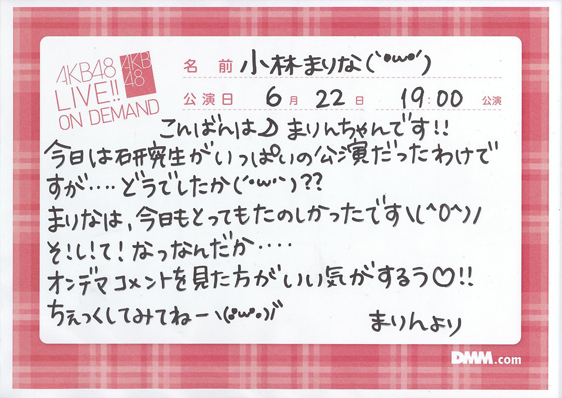 AKB48
LIVE!!
ON DEMAND
AKB
48
名前 小林まりな(`･ω･´)
公演日 6月22日 19:00 公演
こんばんは♪まりんちゃんです!!
今日は研究生がいっぱいの公演だったわけで
すが････どうでしたか(´･ω･`)??
まりなは、今日もとってもたのしかったです\(^O^)/
そ!し!て!なっなんだか････
オンデマコメントを見た方がいい気がするぅ♡!!
ちぇっくしてみてねーヽ(･ω･)ﾉﾞ
まりんより
DMM.com